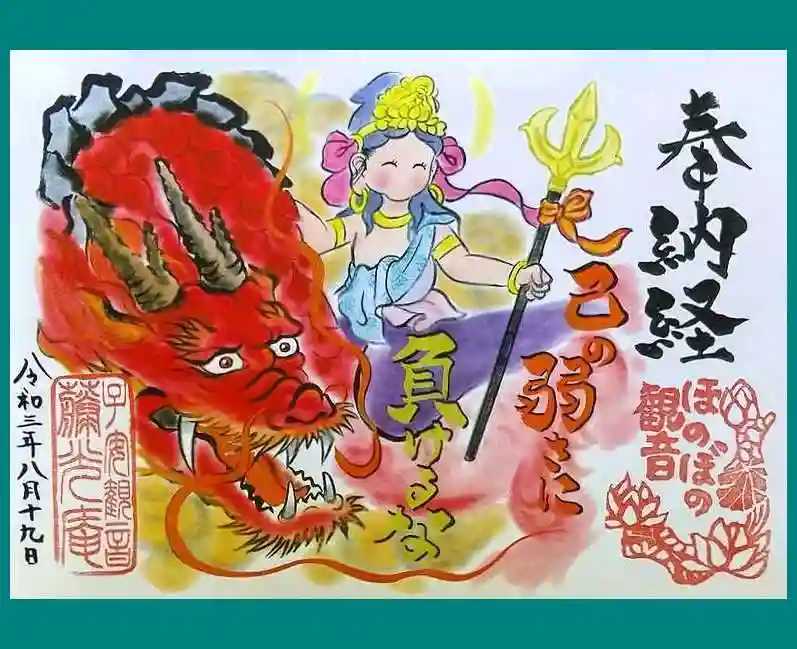 奉納経
ほのぼの
観音
己の
弱さに
負けるな
令和三年八月十九日
子安観音
彌光庵